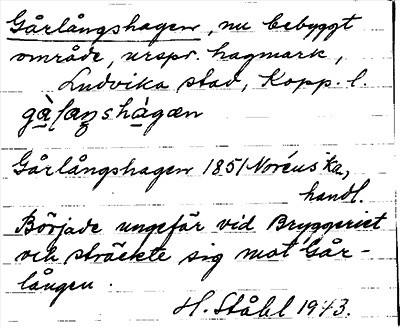 Gårlångshagen, nu bebyggt
område, urspr. hagmark,
Ludvika stad, Kopp. l.
Gårlångshagen 1851 Noréus ka,
handl.
Började ungefär vid Bryggeriet
och sträckte sig mot Går-
lången.
H. Ståhl 1943.